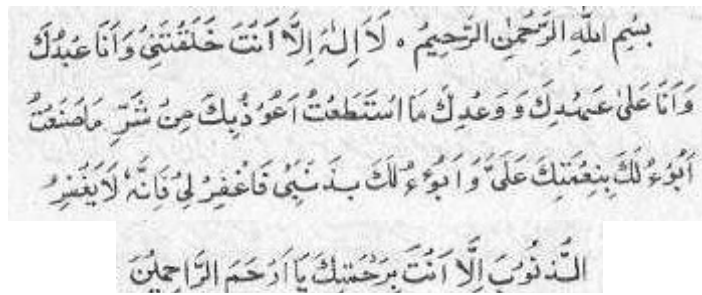 بِسْمِ اللّٰهِ الرَّحْمٰنِ الرَّحِيْمُ ٥ لَآ اِلٰهَ اِلَّا اَنْتَ خَلَقْتَنِيْ وَاَنَا عَبْدُكَ
وَاَنَا عَلٰى عَهْدِكَ وَ وَعْدِكَ مَا اسْتَطَعْتُ اَعُوْذُبِكَ مِنْ شَرِّ مَاصَنَعْتُ
اَبُوْءُ لَكَ بِنِعْمَتِكَ عَلَيَّ وَ اَبُوْءُ لَكَ بِذَنْبِيْ فَاغْفِرْ لِيْ فَاِنَّهٗ لَايَغْفِرُ
الذُّنُوْبَ اِلَّا اَنْتَ بِرَحْمَتِكَ يَا اَرْحَمَ الرَّاحِمِيْنَ